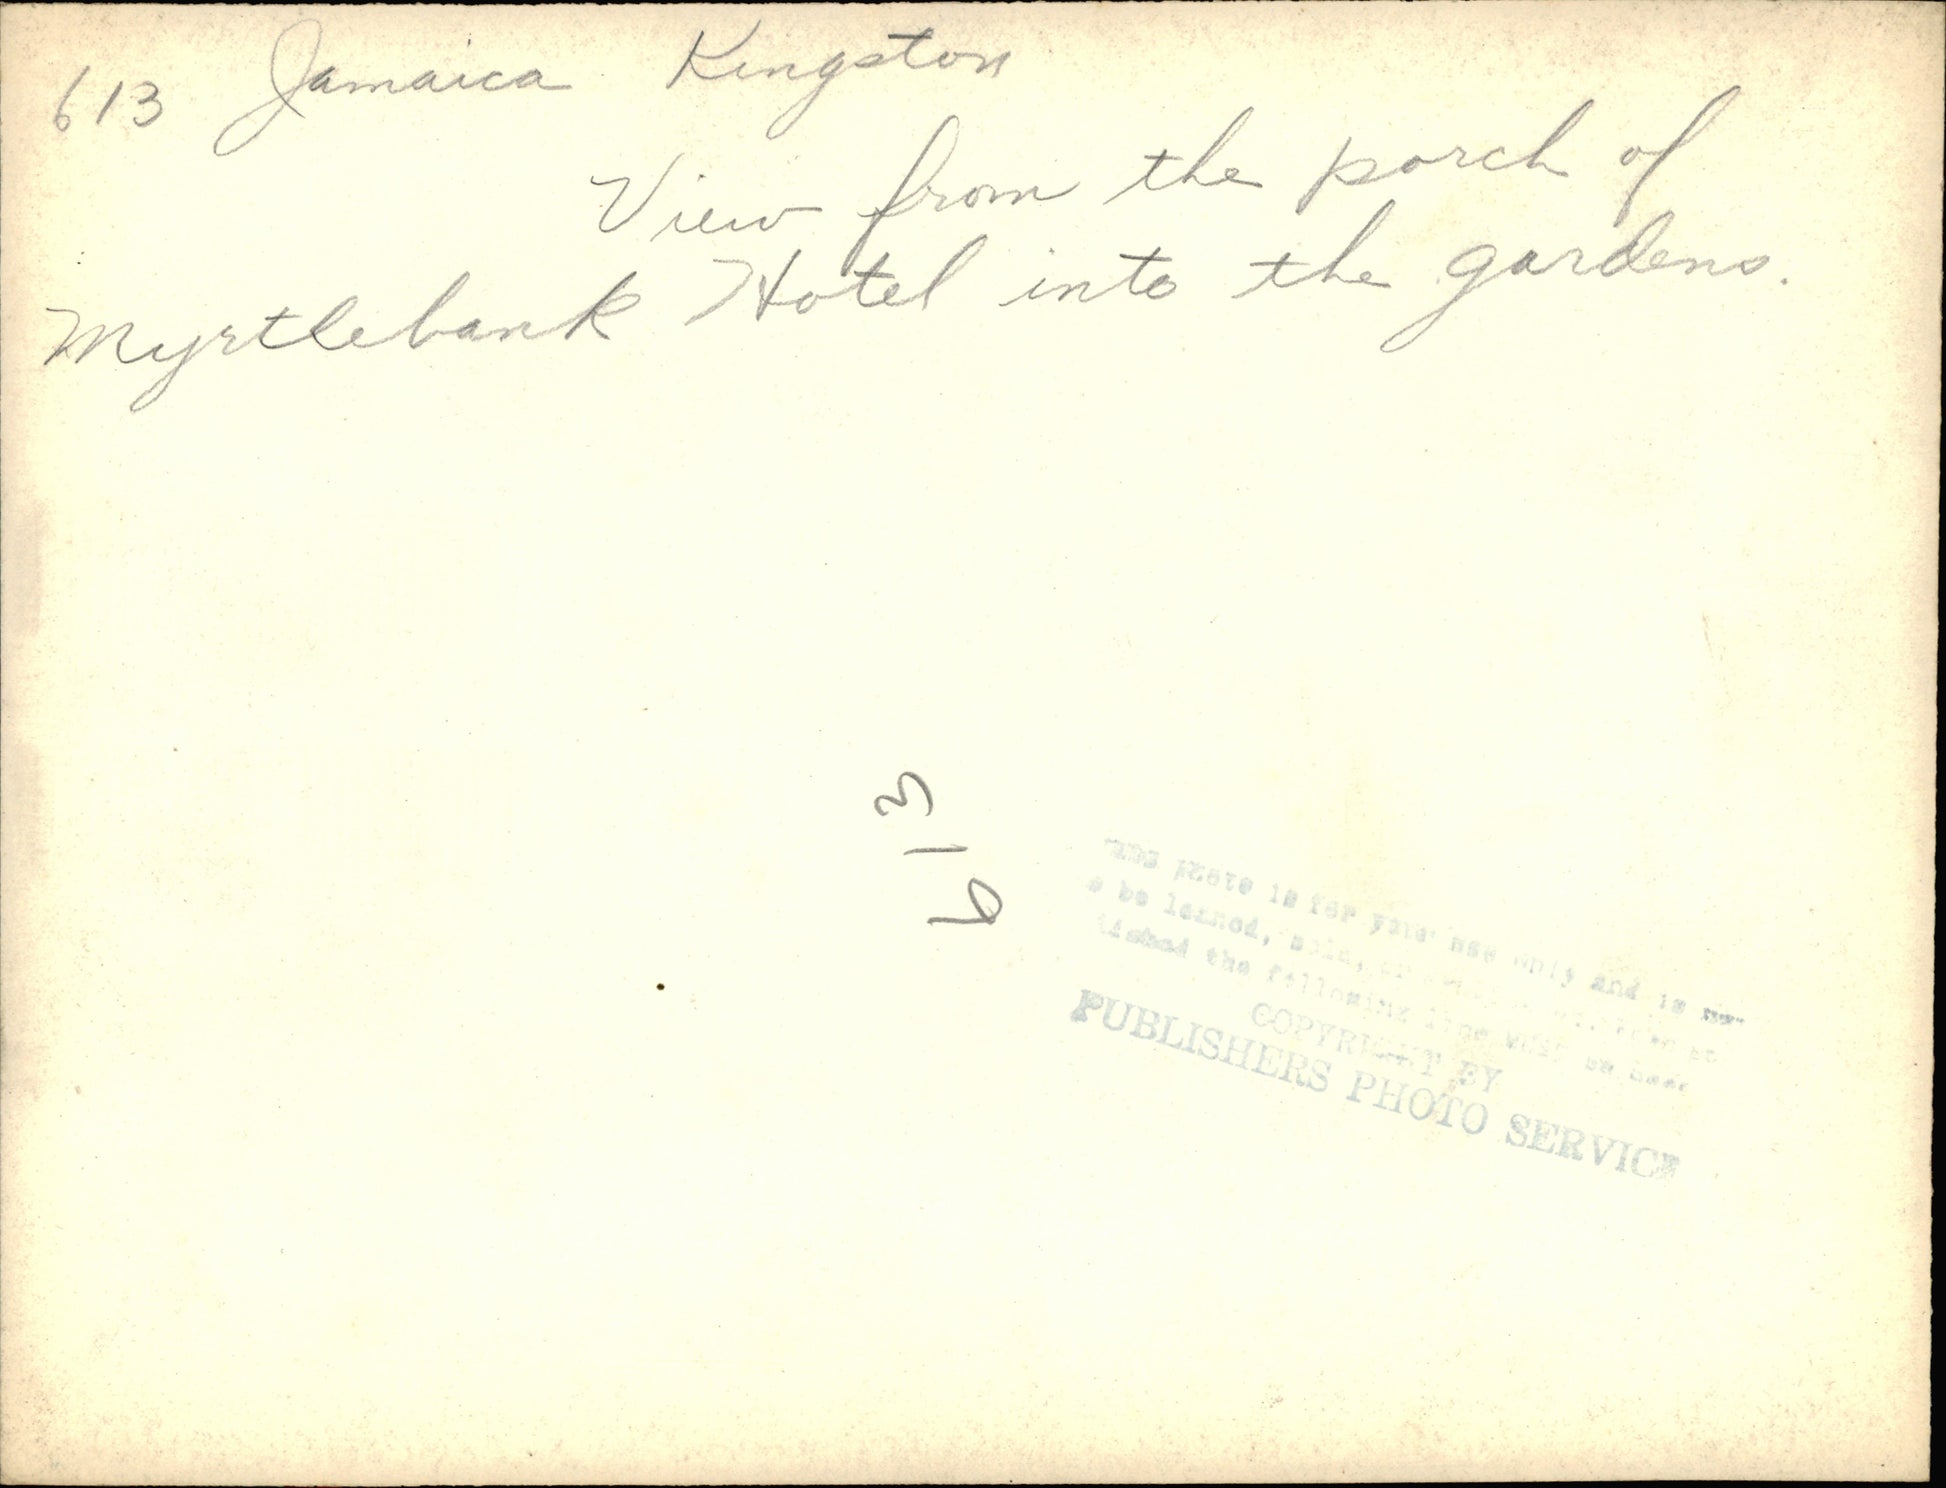 613 Jamaica Kingston
View from the porch of
Myrtlebank Hotel into the gardens.
613
photo is for your use only and is not
be loaned, sold,
the following line must be used
COPYRIGHT BY
PUBLISHERS PHOTO SERVICE